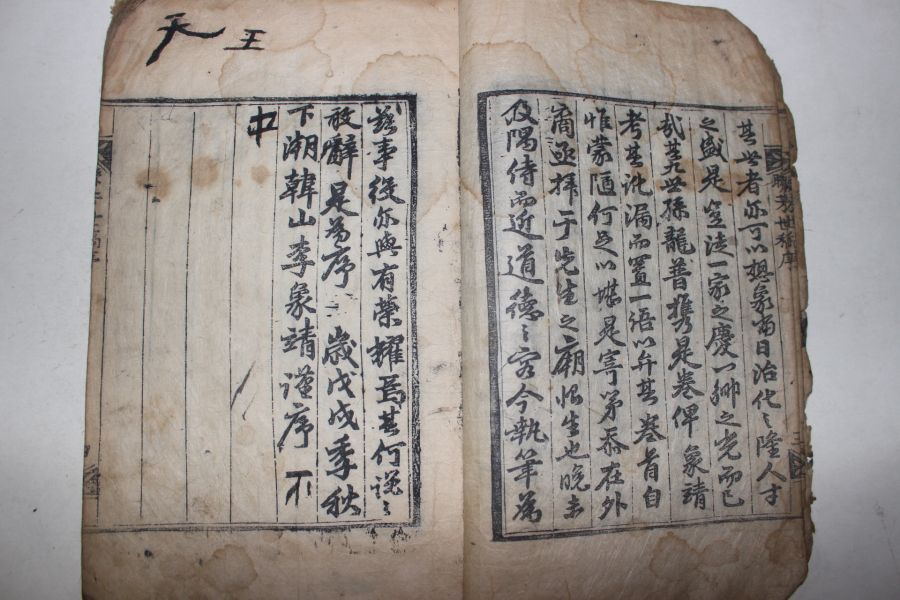 其世者亦可以想象當日治化之隆人才
之盛是豈徒一家之慶一鄉之光而已
哉其九世孫龍普携是卷俾象靖
考其訛漏而置一語以弁其卷首自
惟蒙陋何足以堪是寄第忝在外
裔亟拜于先生之廟恨生也晚未
及隅侍而近道德之容今執筆為
天王
茲事役亦與有榮耀焉其何説之
敢辭是為序 歲戊戌季秋
下澣韓山李象靖謹序 不
中